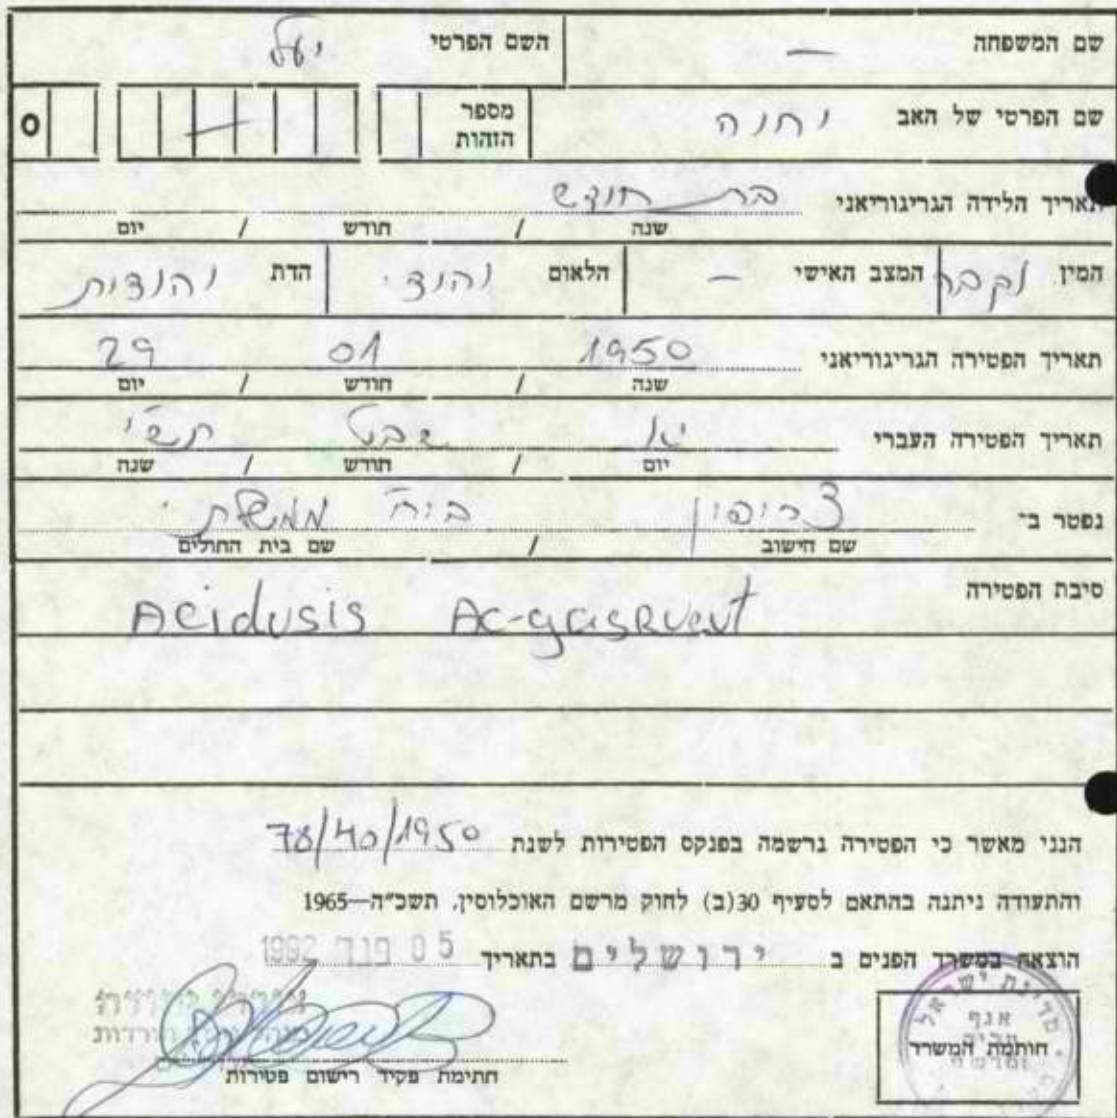 שם המשפחה — השם הפרטי יעל
שם הפרטי של האב יחיה מספר הזהות — 0
תאריך הלידה הגריגוריאני בת חודש
שנה / חודש / יום
המין נקבה המצב האישי — הלאום יהודי הדת יהודית
תאריך הפטירה הגריגוריאני 1950 01 29
שנה / חודש / יום
תאריך הפטירה העברי יא שבט תש"י
יום / חודש / שנה
נפטר ב־ צריפין ביה"ח ממשלתי
שם הישוב / שם בית החולים
סיבת הפטירה
Acidusis Ac-
הנני מאשר כי הפטירה נרשמה בפנקס הפטירות לשנת 78/40/1950
והתעודה ניתנה בהתאם לסעיף 30(ב) לחוק מרשם האוכלוסין, תשכ"ה—1965
הוצאה במשרד הפנים ב ירושלים בתאריך 05 פבר 1992
חתימת פקיד רישום פטירות
מדינת ישראל
אגף
חותמת המשרד